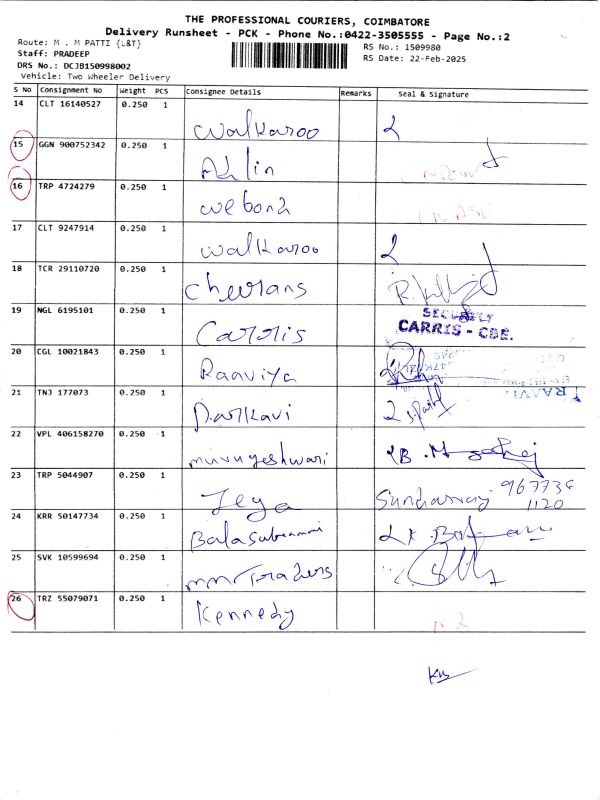 THE PROFESSIONAL COURIERS, COIMBATORE
Delivery Runsheet - PCK - Phone No.:0422-3505555 - Page No.:2
Route: M . M PATTI {L&T}
Staff: PRADEEP
DRS No.: DCJB150998002
Vehicle: Two Wheeler Delivery
RS No.: 1509980
RS Date: 22-Feb-2025
S No Consignment No Weight PCS Consignee Details Remarks Seal & Signature
14 CLT 16140527 0.250 1 Walkaroo
15 GGN 900752342 0.250 1
16 TRP 4724279 0.250 1
17 CLT 9247914 0.250 1 walkaroo
18 TCR 29110720 0.250 1
19 NGL 6195101 0.250 1 SECURITY
CARRIS - CBE.
20 CGL 10021843 0.250 1 Raaviya
21 TNJ 177073 0.250 1
22 VPL 406158270 0.250 1 murugeshwari
23 TRP 5044907 0.250 1 Jeya
24 KRR 50147734 0.250 1
25 SVK 10599694 0.250 1
26 TRZ 55079071 0.250 1 Kennedy